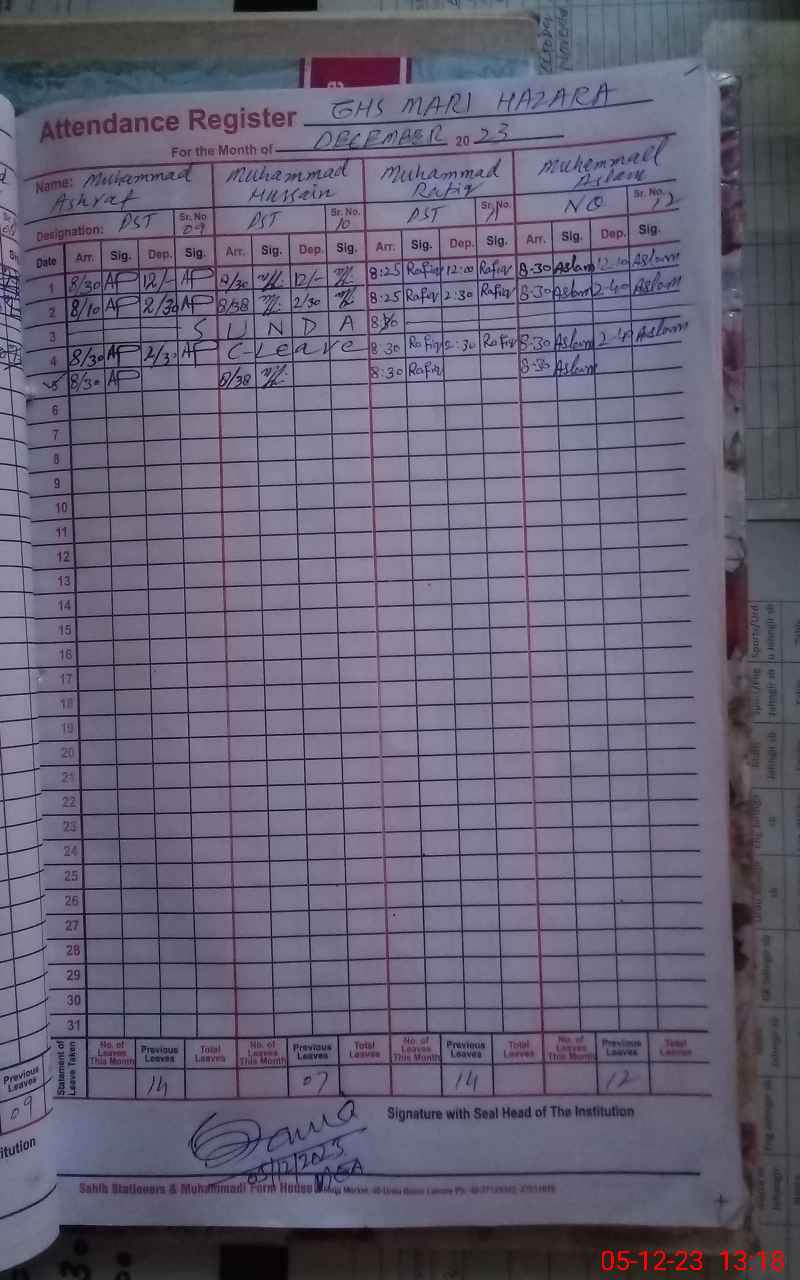 Attendance Register GHS MARI HAZARA
For the Month of DECEMBER 2023
Name: Muhammad Ashraf Muhammad Hussain Muhammad Rafiq Muhammad Aslam
Designation: PST Sr. No. 09 PST Sr. No. 10 PST Sr. No. 11 NQ Sr. No. 12
Date Arr. Sig. Dep. Sig. Arr. Sig. Dep. Sig. Arr. Sig. Dep. Sig. Arr. Sig. Dep. Sig.
1 8/30 AP 12/- AP 8/30 12/- 8:25 Rafiq 12:00 Rafiq 8-30 Aslam 12-10 Aslam
2 8/10 AP 2/30 AP 8/38 2/30 8:25 Rafiq 2:30 Rafiq 8-30 Aslam 2-40 Aslam
3 S U N D A
4 8/30 AP 2/30 AP C-Leave 8:30 Rafiq 2:30 Rafiq 8-30 Aslam 2-40 Aslam
5 8/30 AP 8/38 8:30 Rafiq 8-30 Aslam
6
7
8
9
10
11
12
13
14
15
16
17
18
19
20
21
22
23
24
25
26
27
28
29
30
31
Statement of Leave Taken No. of Leaves This Month Previous Leaves Total Leaves No. of Leaves This Month Previous Leaves Total Leaves No. of Leaves This Month Previous Leaves Total Leaves No. of Leaves This Month Previous Leaves Total Leaves
Previous Leaves
09 14 07 14 12
Signature with Seal Head of The Institution
itution
05/12/2023
MEA
Sahib Stationers & Muhammadi Form House
05-12-23 13:18